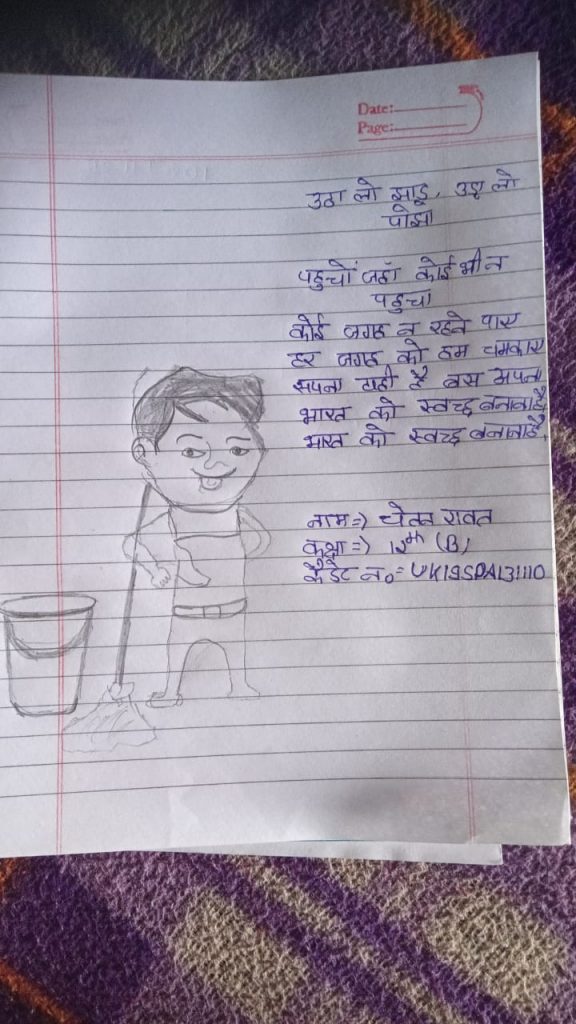 Date:
Page:
उठा लो झाड़ू, उठा लो
पोछा
पहुचों जहाँ कोई भी न
पहुचा
कोई जगह न रहने पाए
हर जगह को हम चमकाए
सपना यही है बस अपना
भारत को स्वच्छ बनाना है
भारत को स्वच्छ बनाना है,
नाम=) चेतन रावत
कक्षा=) 12th (B)
कैडेट न०=UK19SDA131110